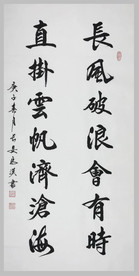 長風破浪會有時
直掛雲帆濟滄海
庚子春月